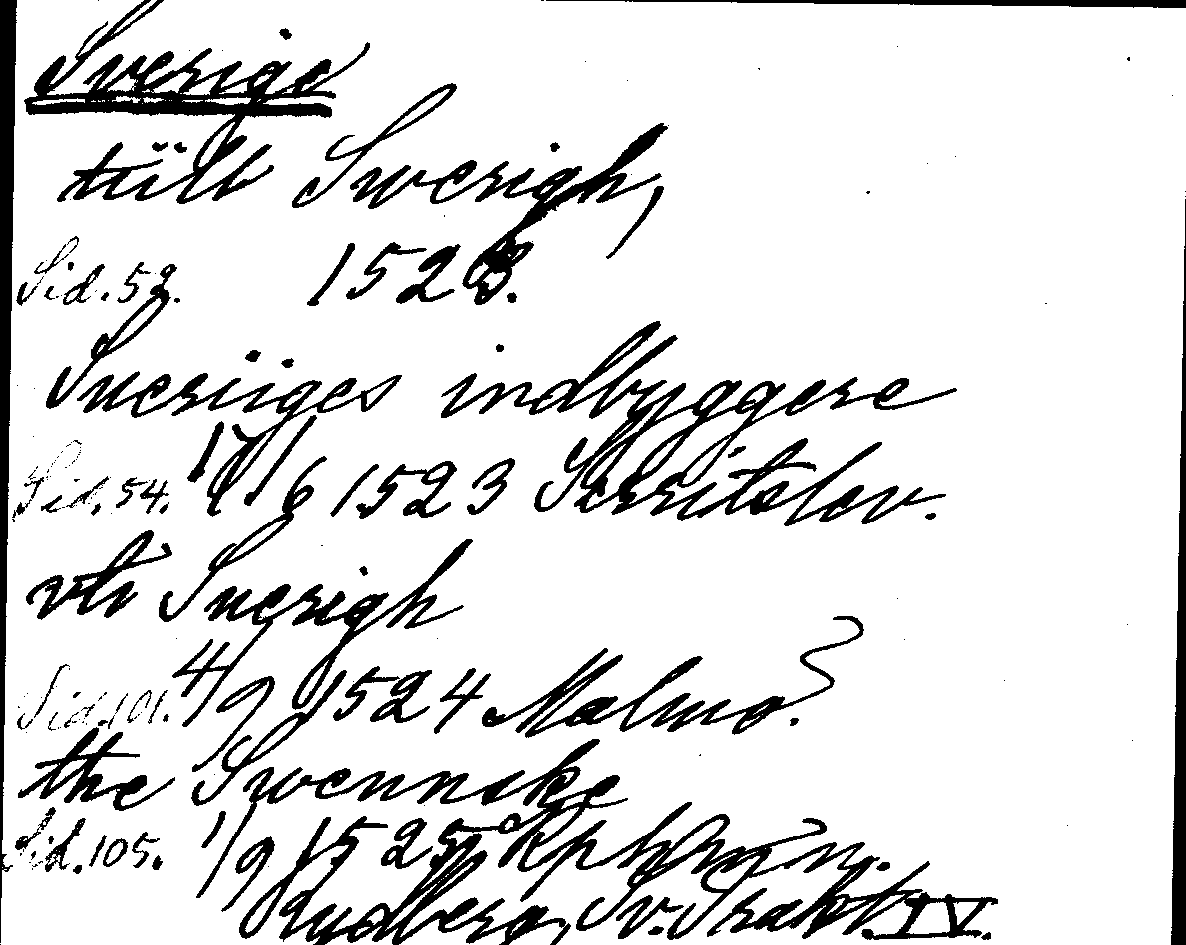 Sverige
tüll Swerigh,
Sid. 52. 1523.
Sueriiges indbyggere
Sid. 54. 17/6 1523 Serritslev.
vti Suerigh
Sid. 101. 4/9 1524 Malmø.
the Swennske
Sid. 105. 1/9 1525
Rydberg, Sv. Trakt. IV.